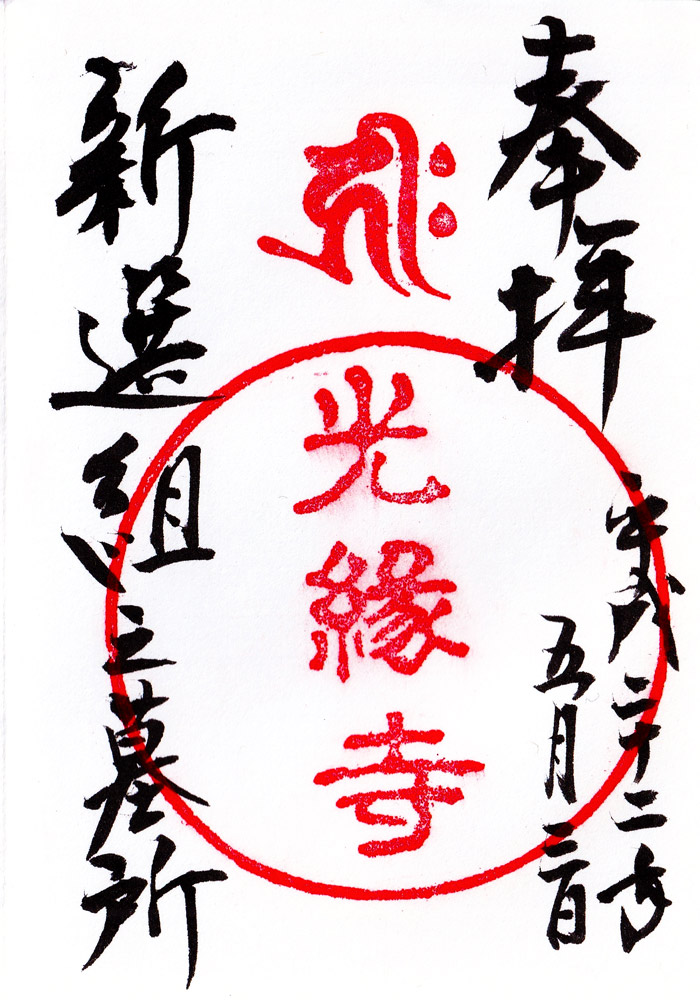 奉拝
平成二十二年
五月三日
𑖮𑖿𑖨𑖱𑖾
光縁寺
新選組之墓所